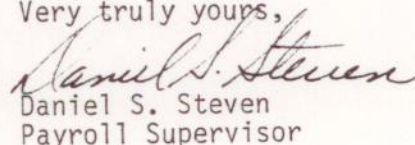 Very truly yours,
Daniel S. Steven
Daniel S. Steven
Payroll Supervisor